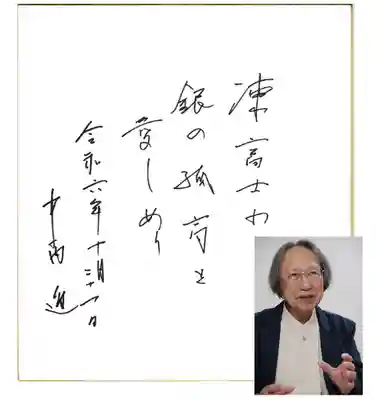 凍富士
銀の孤高を
愛しめり
令和六年十月三十一日